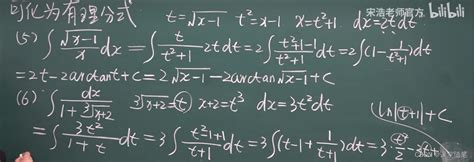 可化为有理分式 t=√(x-1) t²=x-1 x=t²+1 dx=2tdt
宋浩老师官方 bilibili
(5) ∫ √(x-1)/x dx = ∫ t/(t²+1) 2t dt = 2∫ (t²+1-1)/(t²+1) dt = 2∫(1-1/(t²+1))dt
=2t-2arctant+C=2√(x-1)-2arctan√(x-1)+C
(6) ∫ dx/(1+∛(x+2)) ∛(x+2)=t x+2=t³ dx=3t²dt
(ln|t+1|+C
=∫ 3t²/(1+t) dt = 3∫ (t²-1+1)/(t+1) dt = 3∫(t-1+1/(t+1))dt = 3(t²/2-t+